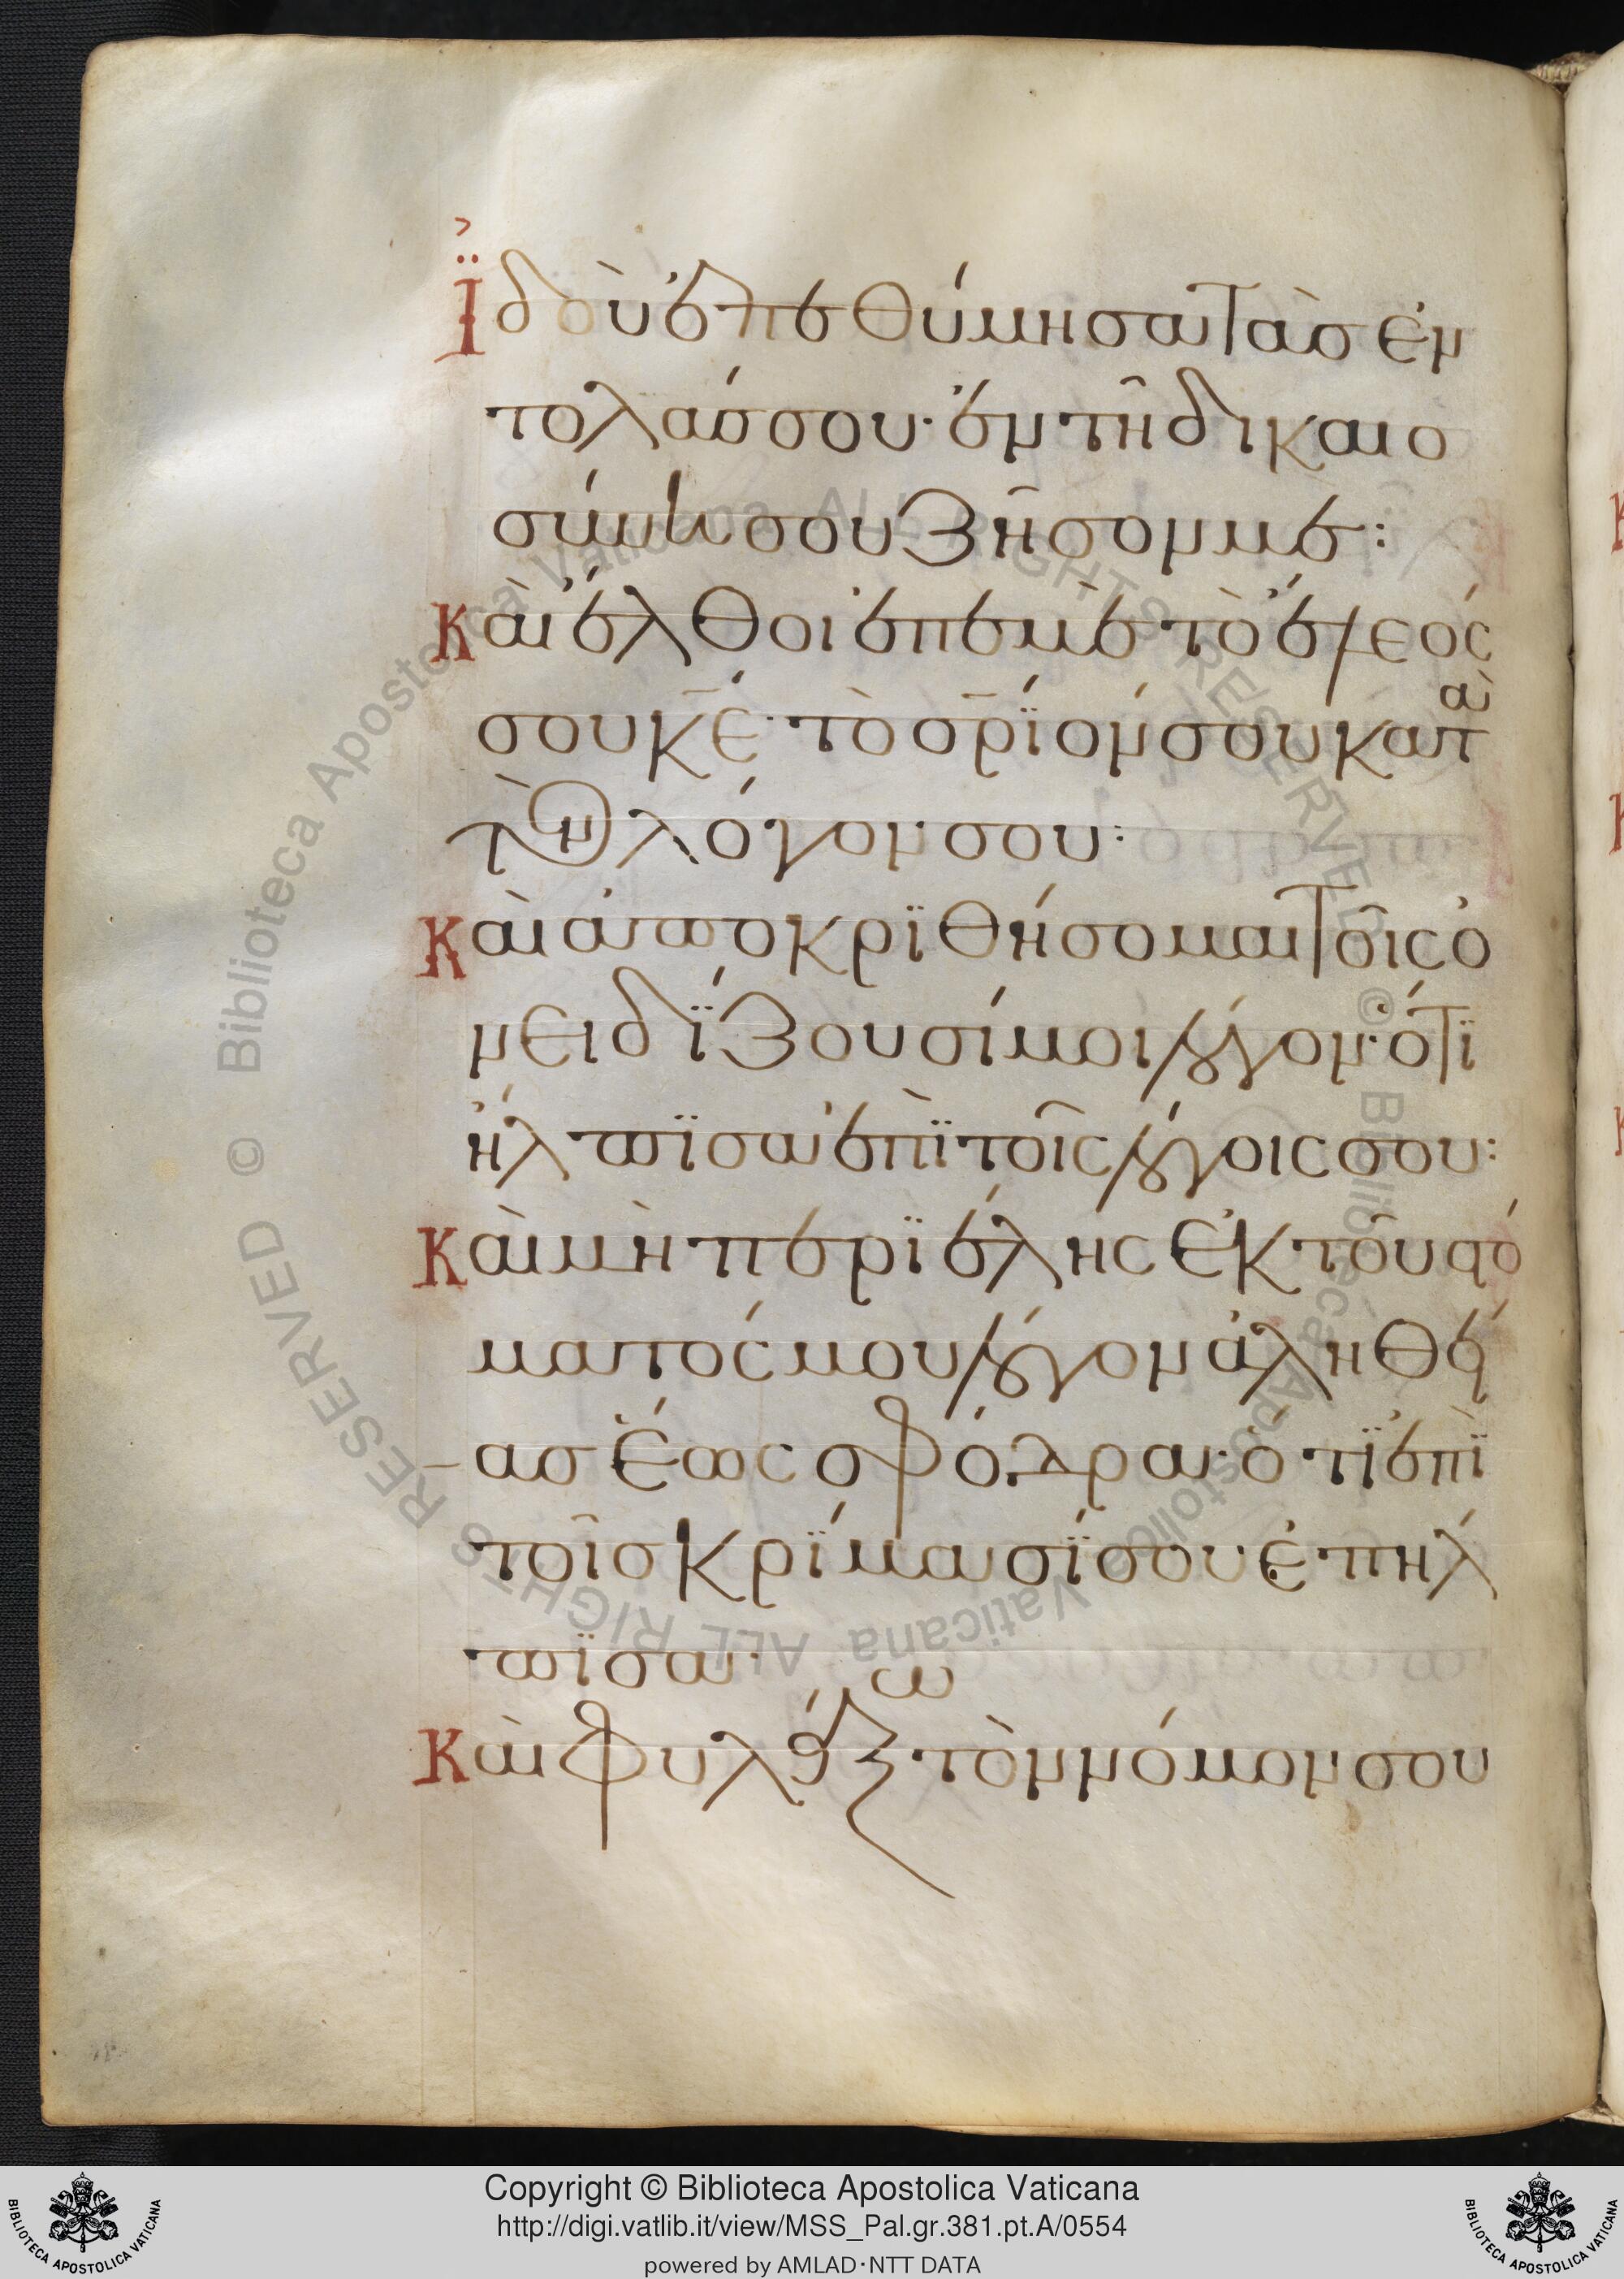 Ἰ̈δοὺ ἐπεθύμησα τὰσ ἐν
τολάσ σου· ἐν τῆ δικαιο
σύνη σου ζῆσόν με:
Καὶ ἔλθοι ἐπεμὲ τὸ ἔλεός
σου κ̅ε̅· τὸ σ̅ρ̅ϊόν σου κατὰ
τὸν λόγον σου:
Καὶ ἀποκρϊθήσομαι τοῖς ὀ
νειδΐζουσί μοι λόγον· ὅτϊ
ἤλπϊσα ἐπῒ τοῖς λόγοις σου:
Καὶ μὴ περϊέλης ἐκ τοῦ στό
ματός μου λόγον ἀληθεί
ασ ἕως σφόδρα· ὅτϊ ἐπῒ
τοῖσ κρΐμασΐ σου ἐπήλ
πϊσα·
Καὶ φυλάξω τὸν νόμον σου
Copyright © Biblioteca Apostolica Vaticana
http://digi.vatlib.it/view/MSS_Pal.gr.381.pt.A/0554
powered by AMLAD·NTT DATA
BIBLIOTECA APOSTOLICA VATICANA
BIBLIOTECA APOSTOLICA VATICANA
© Biblioteca Apostolica Vaticana ALL RIGHTS RESERVED
© Biblioteca Apostolica Vaticana ALL RIGHTS RESERVED